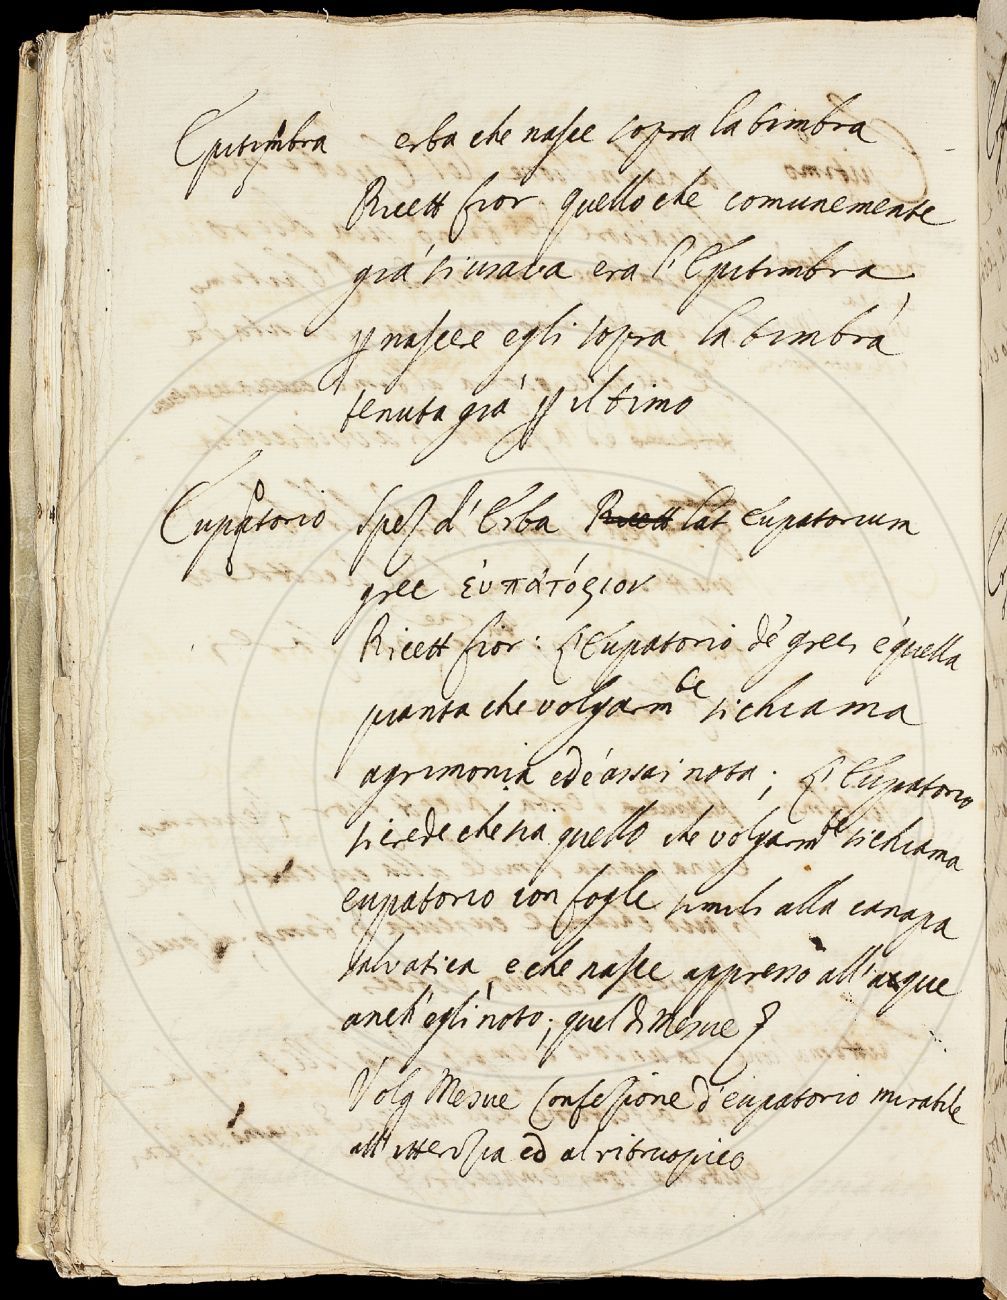 Epitimbra erba che nasce sopra la timbra
Ricett fior quello che comunemente
già si usava era l'Epitimbra
ꝑ nascere egli sopra la timbra
tenuta già ꝑ il timo
Eupatorio Spez d'Erba Ricett lat eupatorium
grec ἐυπατόριον
Ricett fior: L'Eupatorio de' greci è quella
pianta che volgarm.te si chiama
agrimonia ed è assai nota; L'Eupatorio
si crede che sia quello che volgarm.te si chiama
eupatorio con fogle simili alla canapa
salvatica e che nasce appresso all'acque
anch'egli noto; quel di Mesue
Volg Mesue Confezione d'eupatorio mirabile
all'itterizia ed al ritruopico